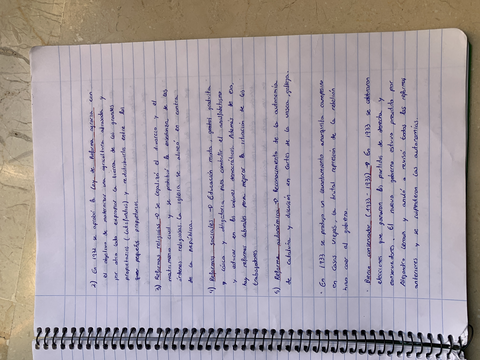 2) En 1932 se aprobó la Ley de Reforma agraria con
el objetivo de modernizar una agricultura atrasada y
por otro lado expropiar la tierra de los grandes
propietarios (latifundios) y distribuirla entre los
que campesinos.
3) Reformas religiosas → se legalizó el divorcio y el
matrimonio civil y se prohibió la enseñanza de las
órdenes religiosas. La iglesia se situó en contra
de la República.
4) Reformas sociales → Educación mixta, gratuita
y laica y obligatoria para combatir el analfabetismo
y educar en los valores democráticos. Además de esto,
hay reformas laborales para mejorar la situación de los
trabajadores
5) Reforma autonómica → Reconocimiento de la autonomía
de Cataluña y discusión en cortes de la vasca, gallega.
· En 1933 se produjo un levantamiento anarquista campesino
en Casas Viejas. La brutal represión de la rebelión
hizo caer al gobierno.
· Bienio conservador (1933-1936) → En 1933 se celebraron
elecciones que ganaron los partidos de derecha y
conservadores. El nuevo gobierno estuvo presidido por
Alejandro Lerroux y revisó todas las reformas
anteriores y se las autonomías.